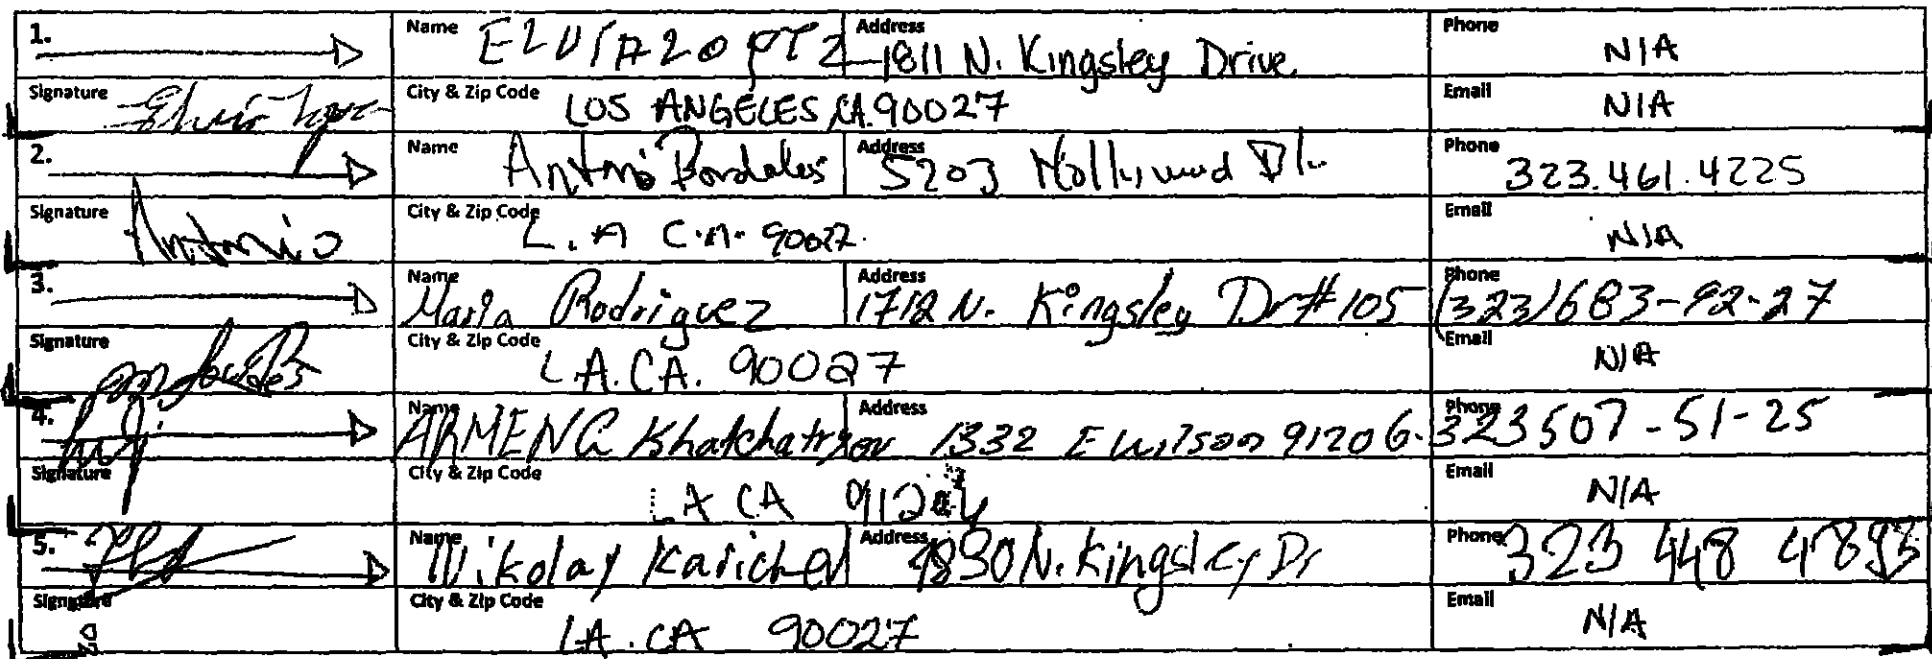 1. Name ELVIA LOPEZ Address 1811 N. Kingsley Drive. Phone N/A
Signature City & Zip Code LOS ANGELES, CA. 90027 Email N/A
2. Name Antonio Address 5203 Hollywood Bl. Phone 323.461.4225
Signature Antonio City & Zip Code L.A C.A. 90027. Email N/A
3. Name Maria Rodriguez Address 1712 N. Kingsley Dr # 105 Phone (323) 683-92-27
Signature City & Zip Code L.A. CA. 90027 Email N/A
4. Name Khatchatryan Address 1332 E Wilson 91206. Phone 323 507-51-25
Signature City & Zip Code LA CA Email N/A
5. Name Nikolay Address 1830 N. Kingsley Dr Phone 323 448
Signature City & Zip Code LA. CA 90027 Email N/A